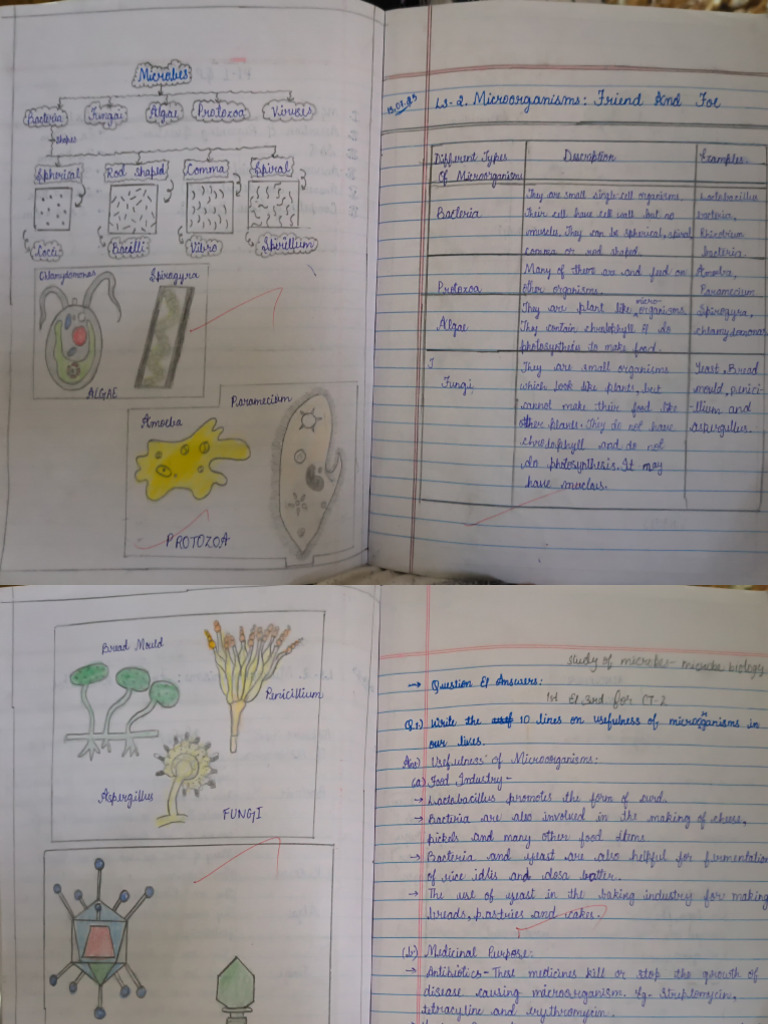 Microbes
Bacteria Fungai Algae Protozoa Viruses
Shapes
Spherical Rod shaped Comma Spiral
Cocci Bacilli Vibro Spirillum
Chlamydomonas Spirogyra
ALGAE
Paramecium
Amoeba
PROTOZOA
Ls-2. Microorganisms: Friend And Foe
Different Types Of Microorganism
Description
Examples
Bacteria
They are small single cell organisms.
Their cell have cell wall but no
nucleus. They can be spherical, spiral
comma or rod shaped.
Lactobacillus
bacteria,
bacteria.
Protozoa
Many of these are and feed on
other organisms.
Amoeba,
Paramecium
Algae
They are plant like micro-organisms
They contain chlorophyll & do
photosynthesis to make food.
Spirogyra,
chlamydomonas
Fungi
They are small organisms
which look like plants, but
cannot make their food like
other plants. They do not have
chlorophyll and do not
do photosynthesis. It may
have nucleus.
Yeast, Bread
mould, penici-
-llium and
aspergillus.
Bread Mould
Penicillium
Aspergillus
FUNGI
study of microbe - microbe biology
→ Question & Answers:
1st & 3rd for CT-2
Q1) Write the 10 lines on usefulness of microorganisms in
our lives.
Ans) Usefulness of Microorganisms:
(a) Food Industry -
→ Lactobacillus promotes the form of curd.
→ Bacteria are also involved in the making of cheese,
pickels and many other food items
→ Bacteria and yeast are also helpful for fermentation
of rice idlis and dosa batter.
→ The use of yeast in the baking industry for making
breads, pastries and cakes.
(b) Medicinal Purpose:
→ Antibiotics - These medicines kill or stop the growth of
disease causing microorganism. Eg- Streptomycin,
tetracyline and erythromycin.